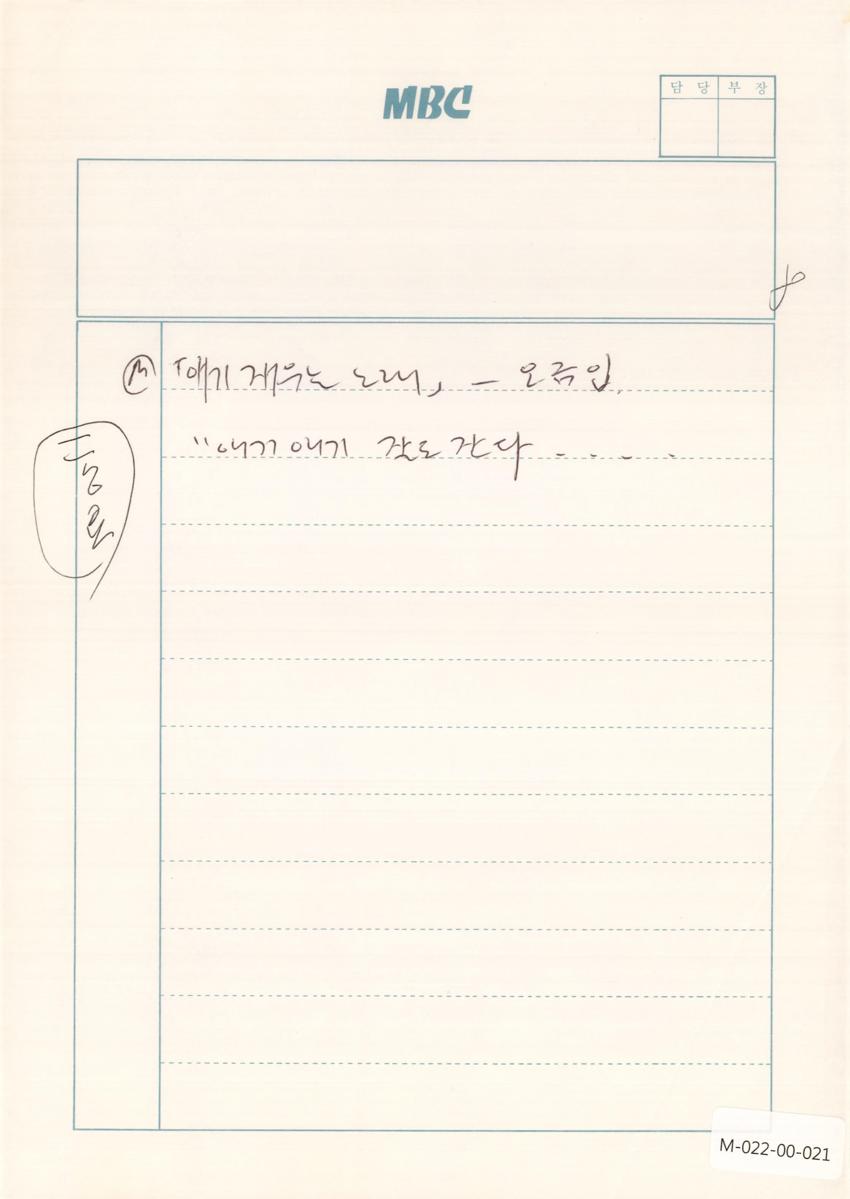 MBC
담당 부장
8
Ⓜ 「애기 재우는 노래」 —
"애기 애기 잘도 잔다 . . . .
M-022-00-021